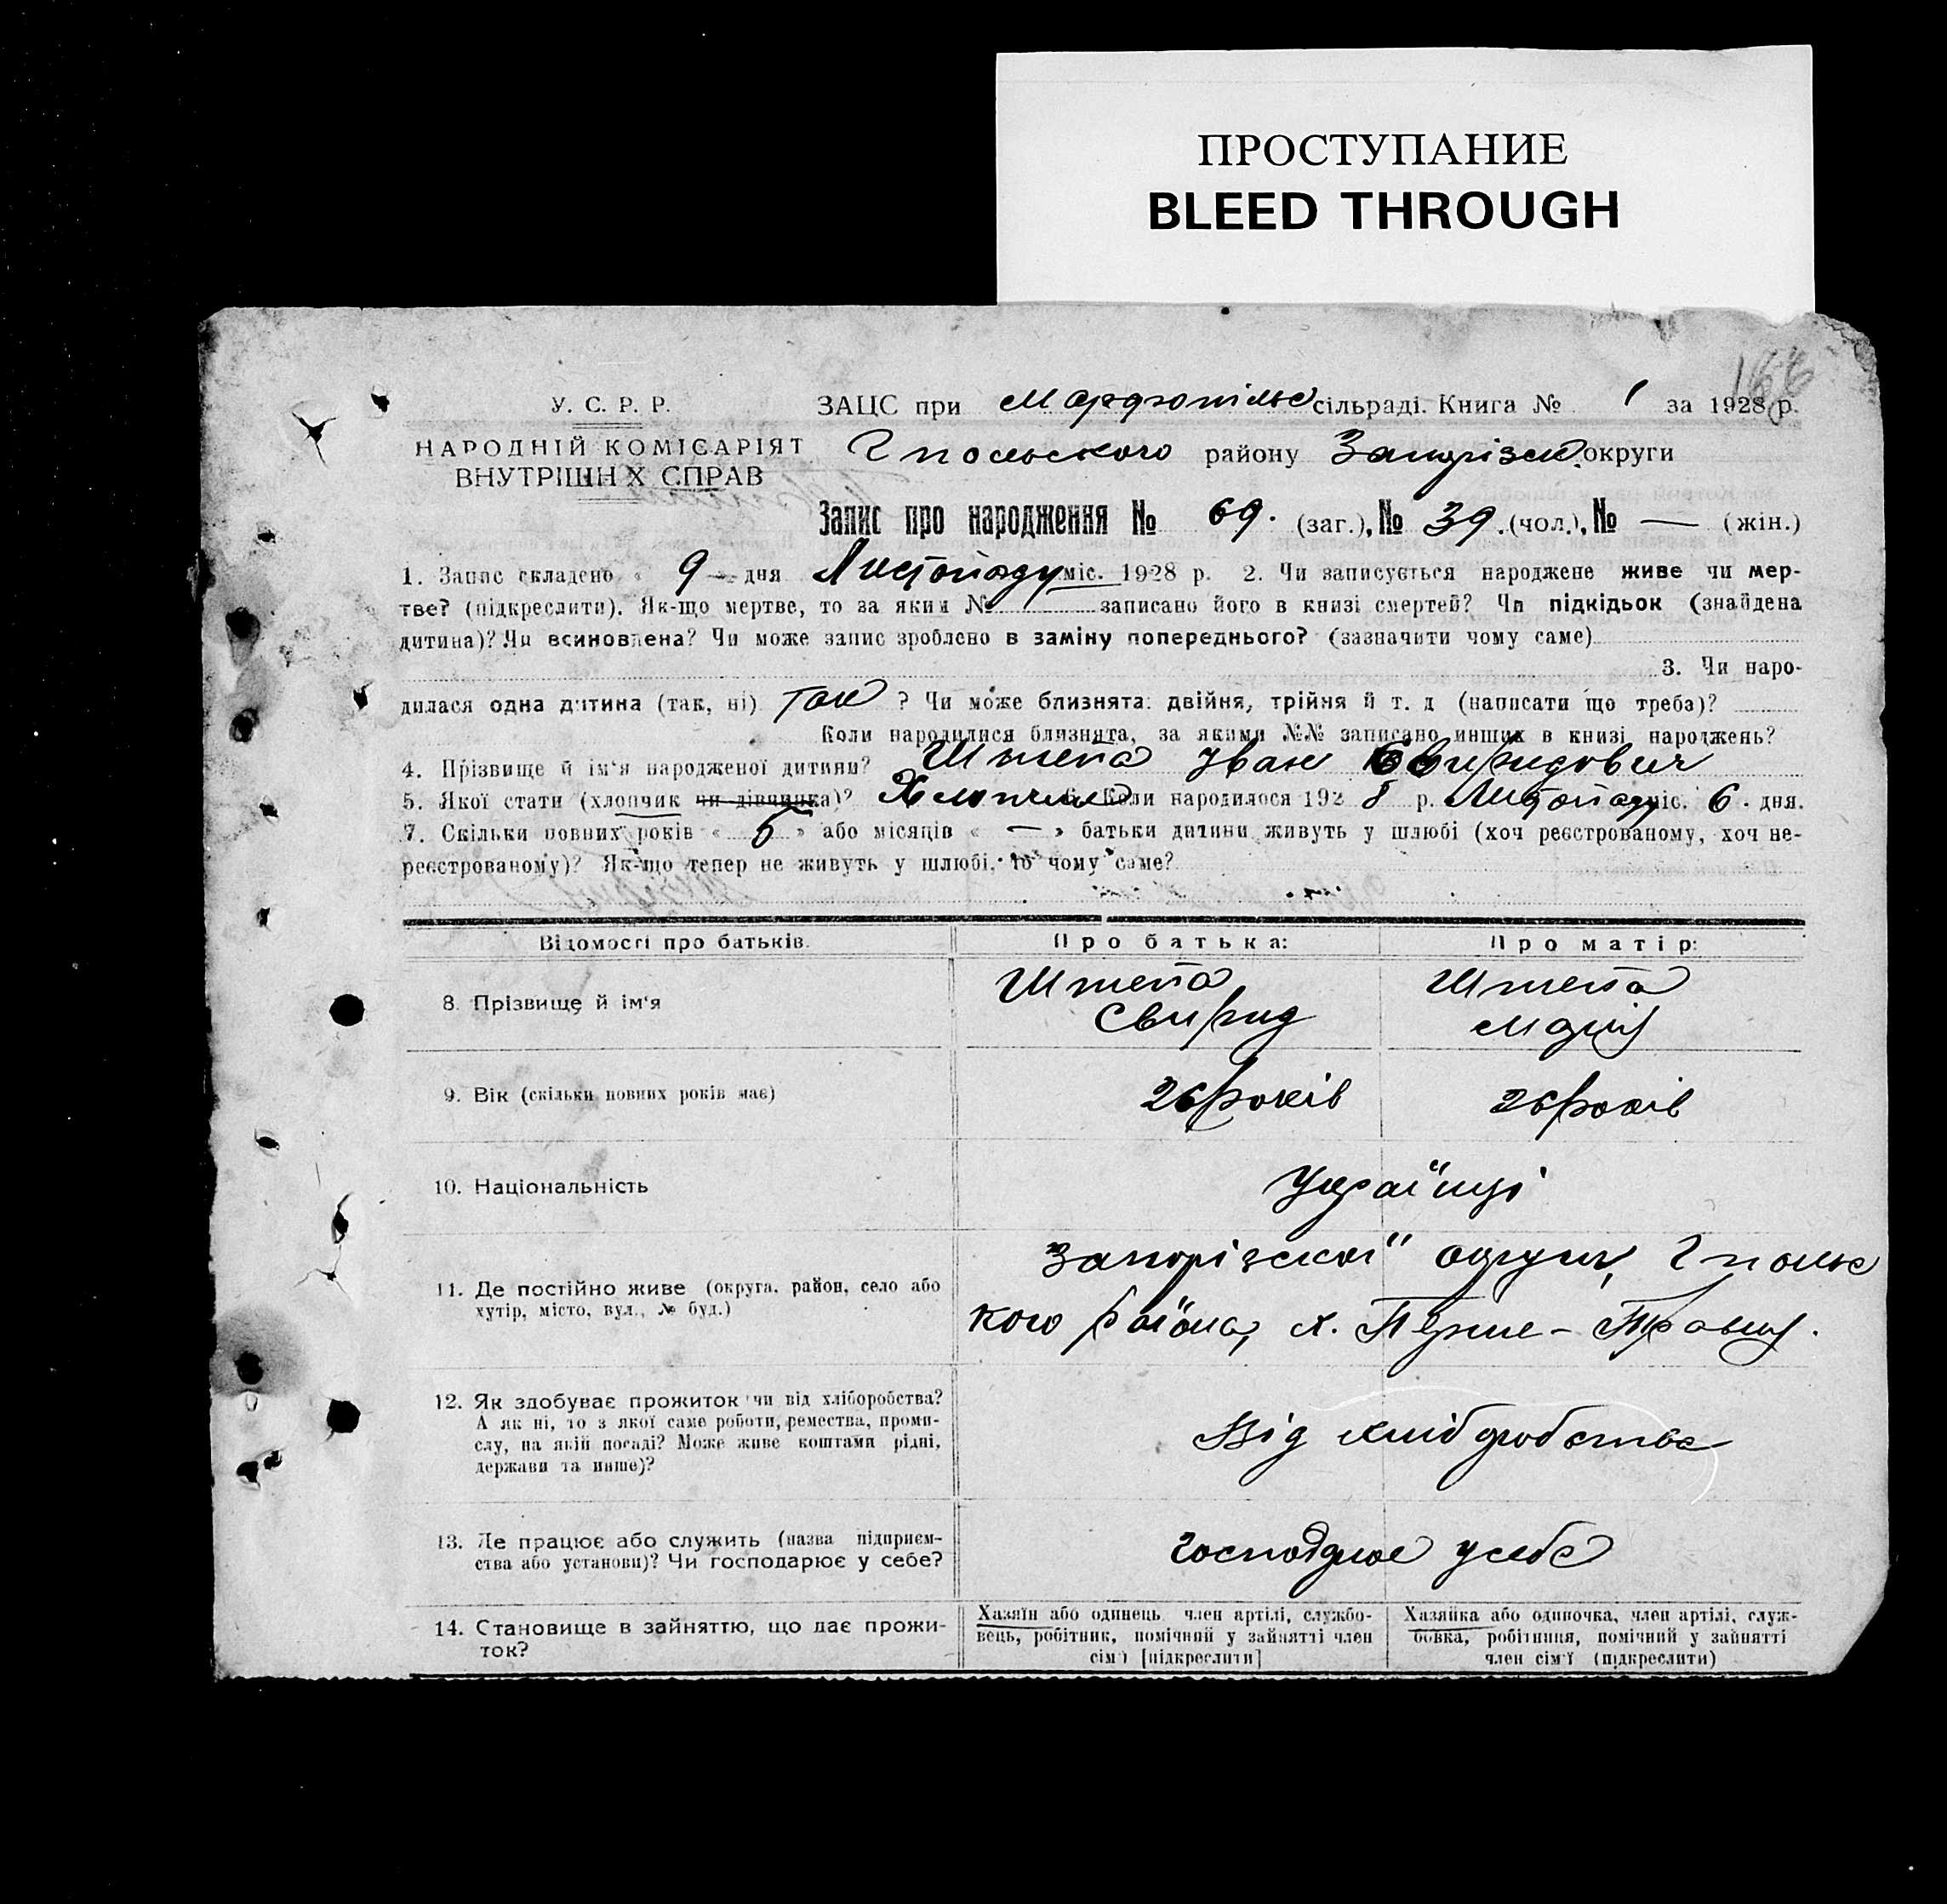 ПРОСТУПАНИЕ
BLEED THROUGH
166
У. С. Р. Р.
НАРОДНІЙ КОМІСАРІЯТ
ВНУТРІШН Х СПРАВ
ЗАЦС при Марфопільс сільраді. Книга № 1 за 1928 р.
Гпольского району Запорізск. округи
Запис про народження № 69. (заг.), № 39. (чол.), № — (жін.)
1. Запис складено « 9 — дня Листопаду міс. 1928 р. 2. Чи записується народжене живе чи мер-
тве? (підкреслити). Як-що мертве, то за яким № записано його в книзі смертей? Чи підкідьок (знайдена
дитина)? Чи всиновлена? Чи може запис зроблено в заміну попереднього? (зазначити чому саме)
3. Чи наро-
дилася одна дитина (так, ні) так ? Чи може близнята: двійня, трійня й т. д (написати що треба)?
Коли народилися близнята, за якими №№ записано инших в книзі народжень?
4. Прізвище й ім'я народженої дитини? Штепа Іван Свиридович
5. Якої стати (хлопчик чи дівчинка)? Хлопчик 6. Коли народилося 192 8 р. Листопаду міс. 6. дня.
7. Скільки повних років « 5 » або місяців « — » батьки дитини живуть у шлюбі (хоч реєстрованому, хоч не-
реєстрованому)? Як-що тепер не живуть у шлюбі, то чому саме?
Відомості про батьків. Про батька: Про матір:
8. Прізвище й ім'я Штепа Свирид Штепа Марія
9. Вік (скільки повних років має) 26 років 26 років
10. Національність Українці
11. Де постійно живе (округа, район, село або
хутір, місто, вул., № буд.)
Запорізскої округи, Гпольс
кого району, х. Перше-Травня.
12. Як здобуває прожиток чи від хліборобства?
А як ні, то з якої саме роботи, ремества, проми-
слу, на якій посаді? Може живе коштами рідні,
держави та инше)?
Від хліборобства
13. Де працює або служить (назва підприєм-
ства або установи)? Чи господарює у себе?
господарює у себе
14. Становище в зайняттю, що дає прожи-
ток?
Хазяїн або одинець член артілі, службо-
вець, робітник, помічний у зайнятті член
сім'ї [підкреслити]
Хазяйка або одиночка, член артілі, служ-
бовка, робітниця, помічний у зайнятті
член сім'ї (підкреслити)